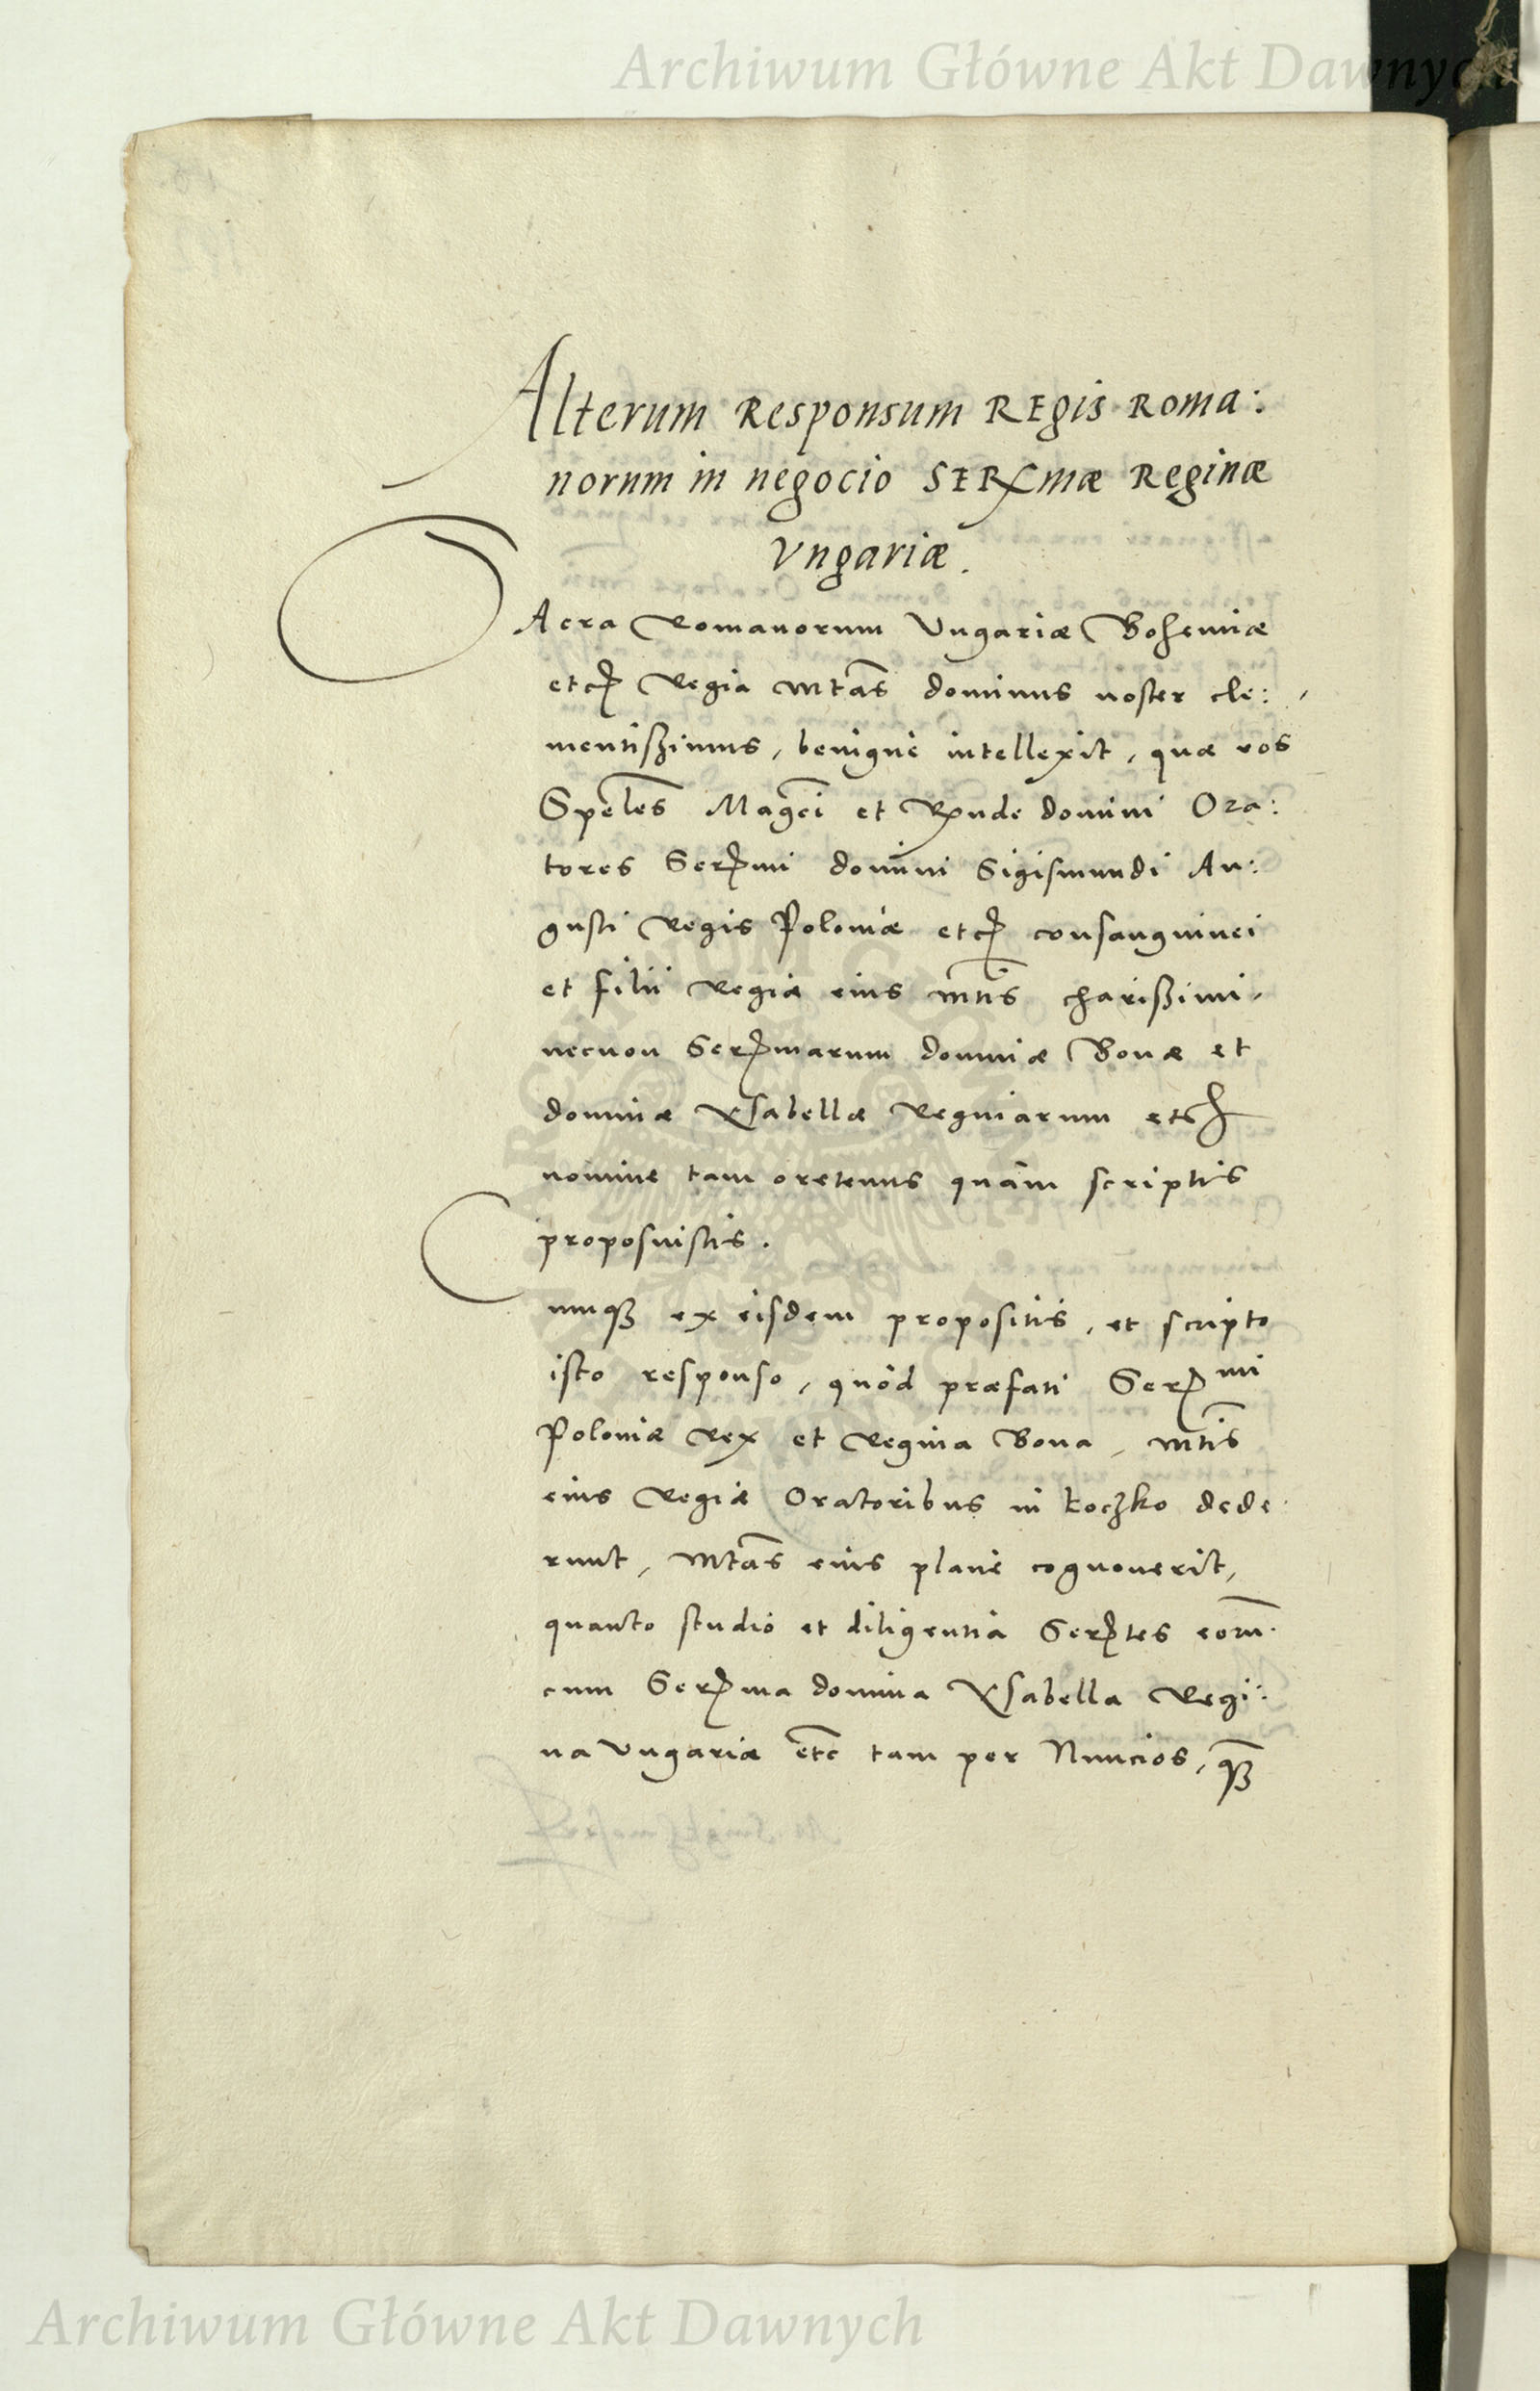 Archiwum Główne Akt Dawnych
Alterum Responsum REgis Roma:
norum in negocio SERmæ Reginæ
Vngariæ.
SAcra Romanorum Vngariæ Bohemiæ
etc Regia Mtas dominus noster cle:
mentißimus, benigne intellexit, quæ vos
Spcles Magci et Rnde domini Ora:
tores Sermi domini Sigismundi Au:
gusti Regis Poloniæ etc consanguinei
et filii Regiæ eius Mtis charißimi,
necnon Sermarum dominæ Bonæ et
dominæ Ysabellæ Reginarum etc
nomine tam oretenus quàm scriptis
proposuistis.
Cumq3 ex eisdem propositis, et scripto
isto responso, quòd præfati Sermi
Poloniæ Rex et Regina Bona, Mtis
eius Regiæ Oratoribus in Łoczko dede:
runt, Mtas eius planè cognouerit,
quanto studio et diligentia Sertes eorum
cum Serma domina Ysabella Regi:
na Vngariæ etc tam per Nuncios, q3
Archiwum Główne Akt Dawnych